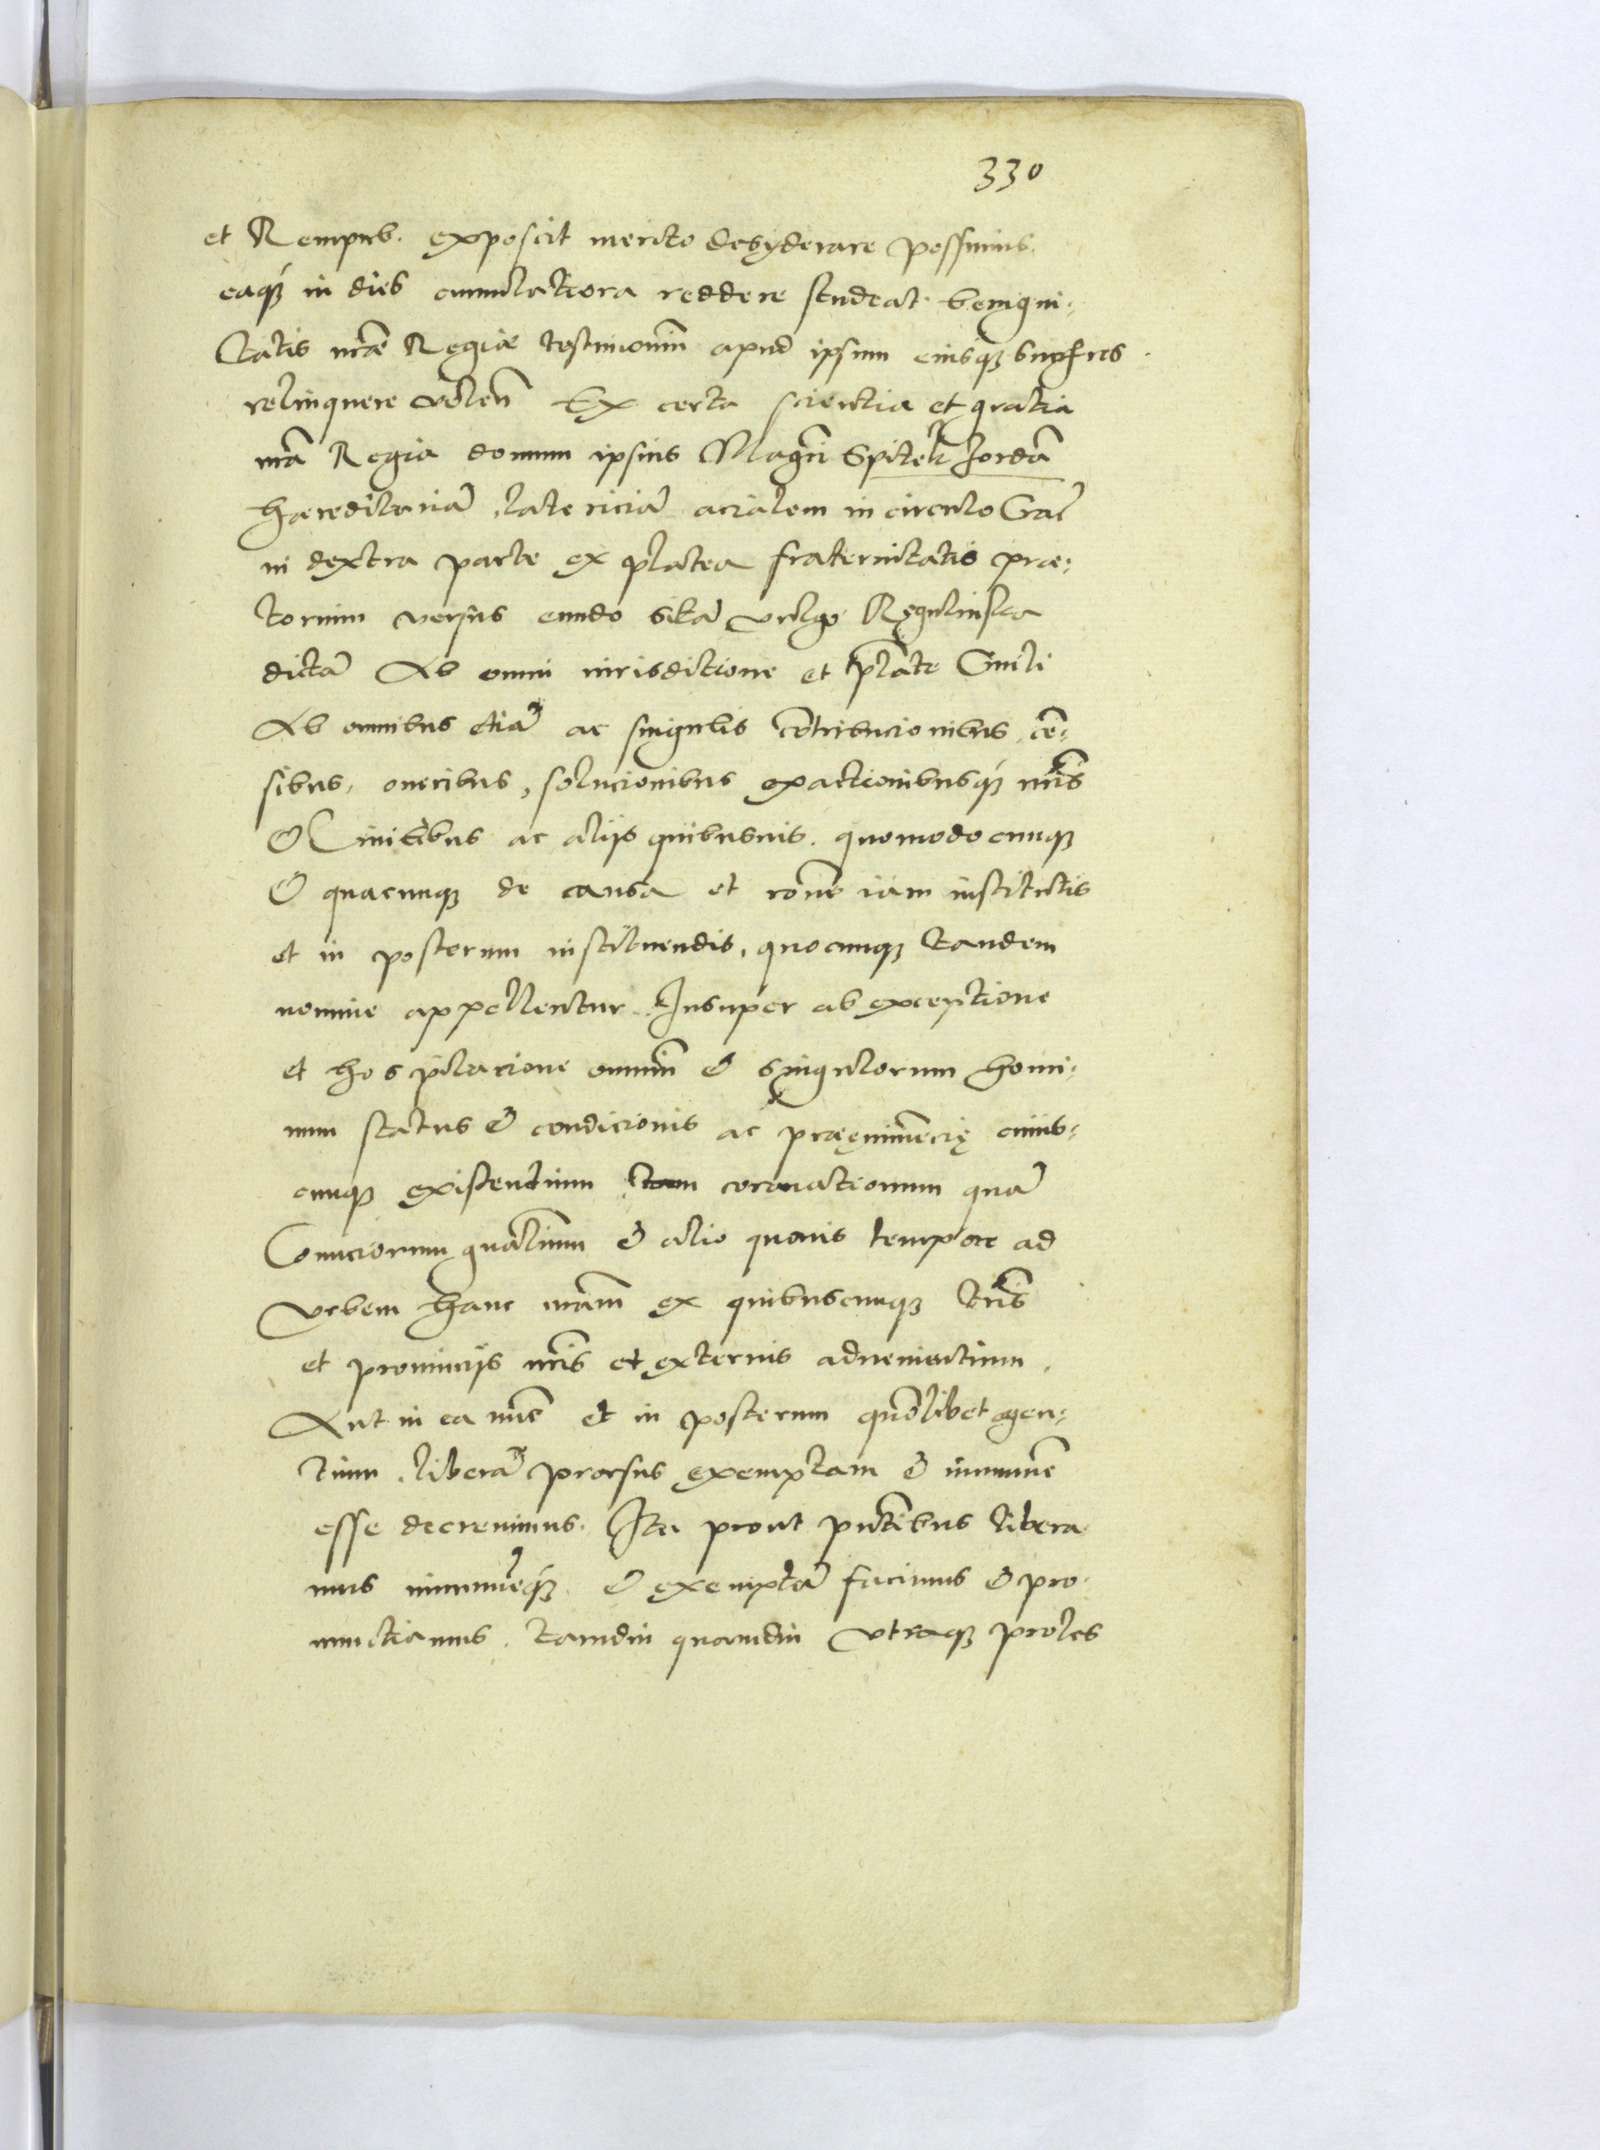 330
et Rempub. exposcit merito desyderare possimus.
eaq́ꝫ in dies cumulatiora reddere studeat. benigni-
tatis nr̃ae Regiae testimoniũ apud ipsum eiusqꝫ
relinquere volen̄ Ex certa scientia et gratia
nr̃a Regia domum ipsius Magn̄i Spitek Jordā
haereditariā, latericiā acialem in circulo Crac̄
in dextra parte ex platea fraternitatis prae-
torium versus eundo sitā vulgo Regulinska
dictā Ab omni iurisdictione et p̄tate Ciuili
Ab omnibus etiā ac singulis cōtribucionibus, cē-
sibus, oneribus, solucionibus exactionibusq́ꝫ nr̃is
& Ciuilibus ac alijs quibusuis. quomodocunqꝫ
& quacunqꝫ de causa et rōne iam institutis
et in posterum instituendis, quocunqꝫ tandem
nomine appellentur. Insuper ab exceptione
et hospitacione omniū & singulorum homi-
num status & condicionis ac praeeminēcię cuius-
cunqꝫ existentium tam coronationum quā
Conuciorum gn̄alium & alio quouis tempore ad
vrbem hanc nr̃am ex quibuscunqꝫ tr̃is
et prouincijs nr̃is et externis aduenientium.
Aut in ea nūc et in posterum quōlibet agen-
tium, liberā prorsus exemptam & immunē
esse decreuimus. Ita prout p̄ntibus libera
mus immunēq́ꝫ & exemptā facimus & pro-
nunctiamus, tamdiu quamdiu vtraqꝫ proles